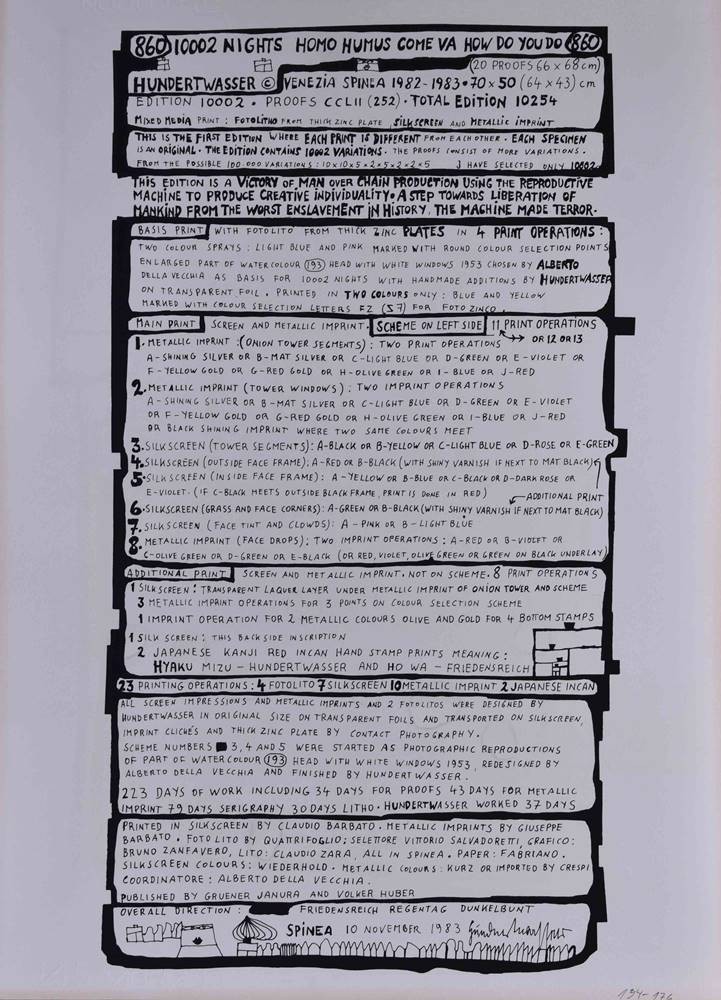 860 10002 NIGHTS HOMO HUMUS COME VA HOW DO YOU DO 860
(20 PROOFS 66 x 68 cm)
HUNDERTWASSER © VENEZIA SPINEA 1982-1983 • 70 x 50 (64 x 43) cm
EDITION 10002 • PROOFS CCLII (252) • TOTAL EDITION 10254
MIXED MEDIA PRINT: FOTOLITHO FROM THICK ZINC PLATE, SILKSCREEN AND METALLIC IMPRINT
THIS IS THE FIRST EDITION WHERE EACH PRINT IS DIFFERENT FROM EACH OTHER • EACH SPECIMEN
IS AN ORIGINAL • THE EDITION CONTAINS 10002 VARIATIONS • THE PROOFS CONSIST OF MORE VARIATIONS.
FROM THE POSSIBLE 100.000 VARIATIONS: 10x10x5x2x5x2x2x5 J HAVE SELECTED ONLY 10002.
THIS EDITION IS A VICTORY OF MAN OVER CHAIN PRODUCTION USING THE REPRODUCTIVE
MACHINE TO PRODUCE CREATIVE INDIVIDUALITY • A STEP TOWARDS LIBERATION OF
MANKIND FROM THE WORST ENSLAVEMENT IN HISTORY, THE MACHINE MADE TERROR •
BASIS PRINT WITH FOTOLITO FROM THICK ZINC PLATES IN 4 PRINT OPERATIONS:
TWO COLOUR SPRAYS: LIGHT BLUE AND PINK MARKED WITH ROUND COLOUR SELECTION POINTS
ENLARGED PART OF WATERCOLOUR (193) HEAD WITH WHITE WINDOWS 1953 CHOSEN BY ALBERTO
DELLA VECCHIA AS BASIS FOR 10002 NIGHTS WITH HANDMADE ADDITIONS BY HUNDERTWASSER
ON TRANSPARENT FOIL. PRINTED IN TWO COLOURS ONLY: BLUE AND YELLOW
MARKED WITH COLOUR SELECTION LETTERS FZ (57) FOR FOTO ZINCO.
MAIN PRINT SCREEN AND METALLIC IMPRINT. SCHEME ON LEFT SIDE 11 PRINT OPERATIONS
1. METALLIC IMPRINT: (ONION TOWER SEGMENTS): TWO PRINT OPERATIONS OR 12 OR 13
A-SHINING SILVER OR B-MAT SILVER OR C-LIGHT BLUE OR D-GREEN OR E-VIOLET OR
F-YELLOW GOLD OR G-RED GOLD OR H-OLIVE GREEN OR I-BLUE OR J-RED
2. METALLIC IMPRINT (TOWER WINDOWS): TWO IMPRINT OPERATIONS
A-SHINING SILVER OR B-MAT SILVER OR C-LIGHT BLUE OR D-GREEN OR E-VIOLET
OR F-YELLOW GOLD OR G-RED GOLD OR H-OLIVE GREEN OR I-BLUE OR J-RED
OR BLACK SHINING IMPRINT WHERE TWO SAME COLOURS MEET
3. SILKSCREEN (TOWER SEGMENTS): A-BLACK OR B-YELLOW OR C-LIGHT BLUE OR D-ROSE OR E-GREEN
4. SILKSCREEN (OUTSIDE FACE FRAME): A-RED OR B-BLACK (WITH SHINY VARNISH IF NEXT TO MAT BLACK)
5. SILKSCREEN (INSIDE FACE FRAME): A-YELLOW OR B-BLUE OR C-BLACK OR D-DARK ROSE OR
E-VIOLET. (IF C-BLACK MEETS OUTSIDE BLACK FRAME, PRINT IS DONE IN RED) ADDITIONAL PRINT
6. SILKSCREEN (GRASS AND FACE CORNERS): A-GREEN OR B-BLACK (WITH SHINY VARNISH IF NEXT TO MAT BLACK)
7. SILKSCREEN (FACE TINT AND CLOWDS): A-PINK OR B-LIGHT BLUE
8. METALLIC IMPRINT (FACE DROPS): TWO IMPRINT OPERATIONS: A-RED OR B-VIOLET OR
C-OLIVE GREEN OR D-GREEN OR E-BLACK (OR RED, VIOLET, OLIVE GREEN OR GREEN ON BLACK UNDERLAY)
ADDITIONAL PRINT SCREEN AND METALLIC IMPRINT. NOT ON SCHEME. 8 PRINT OPERATIONS
1 SILKSCREEN: TRANSPARENT LAQUER LAYER UNDER METALLIC IMPRINT OF ONION TOWER AND SCHEME
3 METALLIC IMPRINT OPERATIONS FOR 3 POINTS ON COLOUR SELECTION SCHEME
1 IMPRINT OPERATION FOR 2 METALLIC COLOURS OLIVE AND GOLD FOR 4 BOTTOM STAMPS
1 SILK SCREEN: THIS BACKSIDE INSCRIPTION
2 JAPANESE KANJI RED INCAN HAND STAMP PRINTS MEANING:
HYAKU MIZU - HUNDERTWASSER AND HO WA - FRIEDENSREICH
23 PRINTING OPERATIONS: 4 FOTOLITO 7 SILKSCREEN 10 METALLIC IMPRINT 2 JAPANESE INCAN
ALL SCREEN IMPRESSIONS AND METALLIC IMPRINTS AND 2 FOTOLITOS WERE DESIGNED BY
HUNDERTWASSER IN ORIGINAL SIZE ON TRANSPARENT FOILS AND TRANSPORTED ON SILKSCREEN,
IMPRINT CLICHÉS AND THICK ZINC PLATE BY CONTACT PHOTOGRAPHY.
SCHEME NUMBERS 3, 4 AND 5 WERE STARTED AS PHOTOGRAPHIC REPRODUCTIONS
OF PART OF WATERCOLOUR (193) HEAD WITH WHITE WINDOWS 1953, REDESIGNED BY
ALBERTO DELLA VECCHIA AND FINISHED BY HUNDERTWASSER.
223 DAYS OF WORK INCLUDING 34 DAYS FOR PROOFS 43 DAYS FOR METALLIC
IMPRINT 79 DAYS SERIGRAPHY 30 DAYS LITHO • HUNDERTWASSER WORKED 37 DAYS
PRINTED IN SILKSCREEN BY CLAUDIO BARBATO. METALLIC IMPRINTS BY GIUSEPPE
BARBATO. FOTOLITO BY QUATTRIFOGLIO; SELETTORE VITTORIO SALVADORETTI, GRAFICO:
BRUNO ZANFAVERO, LITO: CLAUDIO ZARA, ALL IN SPINEA. PAPER: FABRIANO.
SILKSCREEN COLOURS: WIEDERHOLD. METALLIC COLOURS: KURZ OR IMPORTED BY CRESPI
COORDINATORE: ALBERTO DELLA VECCHIA.
PUBLISHED BY GRUENER JANURA AND VOLKER HUBER
OVERALL DIRECTION: FRIEDENSREICH REGENTAG DUNKELBUNT
SPINEA 10 NOVEMBER 1983 Hundertwasser